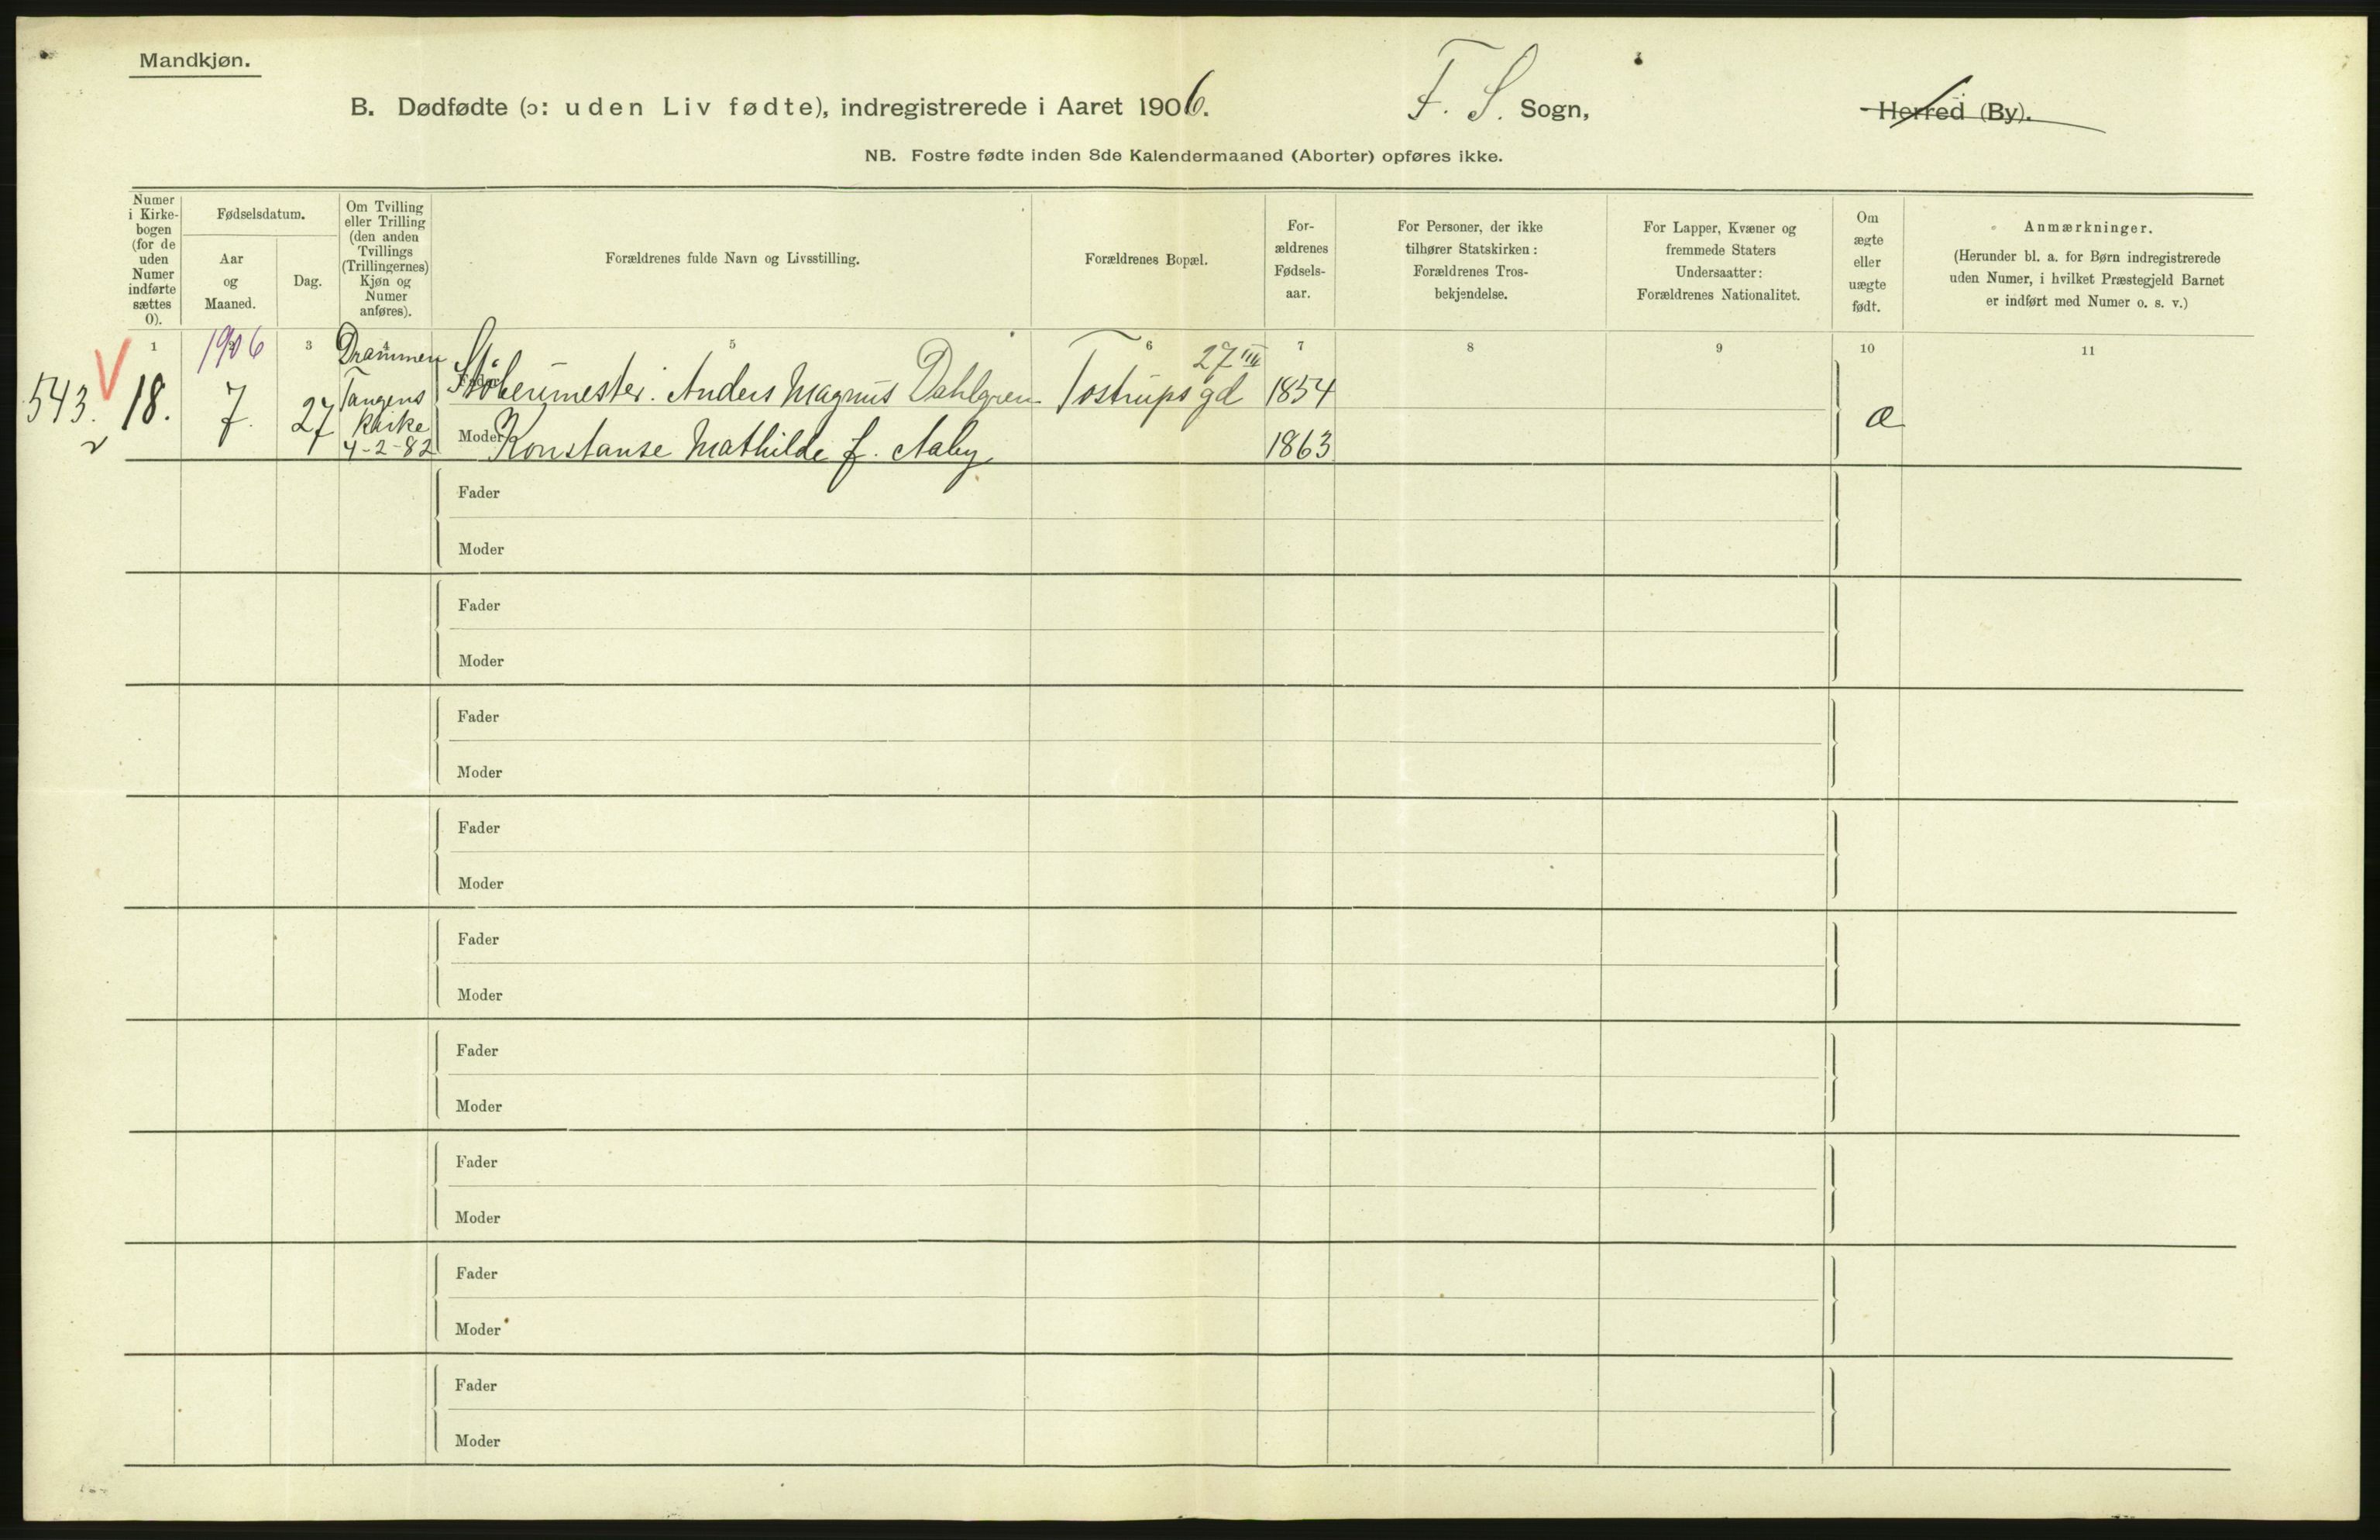 Mandkjøn.
B. Dødfødte (ɔ: uden Liv fødte), indregistrerede i Aaret 1906.
F. S. Sogn,
Herred (By).
NB. Fostre fødte inden 8de Kalendermaaned (Aborter) opføres ikke.
Numer
i Kirke-
bogen
(for de
uden
Numer
indførte
sættes
0).
Fødselsdatum.
Aar
og
Maaned.
Dag.
Om Tvilling
eller Trilling
(den anden
Tvillings
(Trillingernes)
Kjøn og
Numer
anføres).
Forældrenes fulde Navn og Livsstilling.
Forældrenes Bopæl.
For-
ældrenes
Fødsels-
aar.
For Personer, der ikke
tilhører Statskirken:
Forældrenes Tros-
bekjendelse.
For Lapper, Kvæner og
fremmede Staters
Undersaatter:
Forældrenes Nationalitet.
Om
ægte
eller
uægte
født.
Anmærkninger.
(Herunder bl. a. for Børn indregistrerede
uden Numer, i hvilket Præstegjeld Barnet
er indført med Numer o. s. v.)
1 3 5 6 7 8 9 10 11
1906
543. V 18. 7. 27
Drammen
Tangens
Kirke
4-2-82
Støberimester. Anders Magnus Dahlgren Tostrups gd 27 1854
Moder Konstanse Mathilde f. Aaby 1863
æ
Fader
Moder
Fader
Moder
Fader
Moder
Fader
Moder
Fader
Moder
Fader
Moder
Fader
Moder
Fader
Moder
Fader
Moder